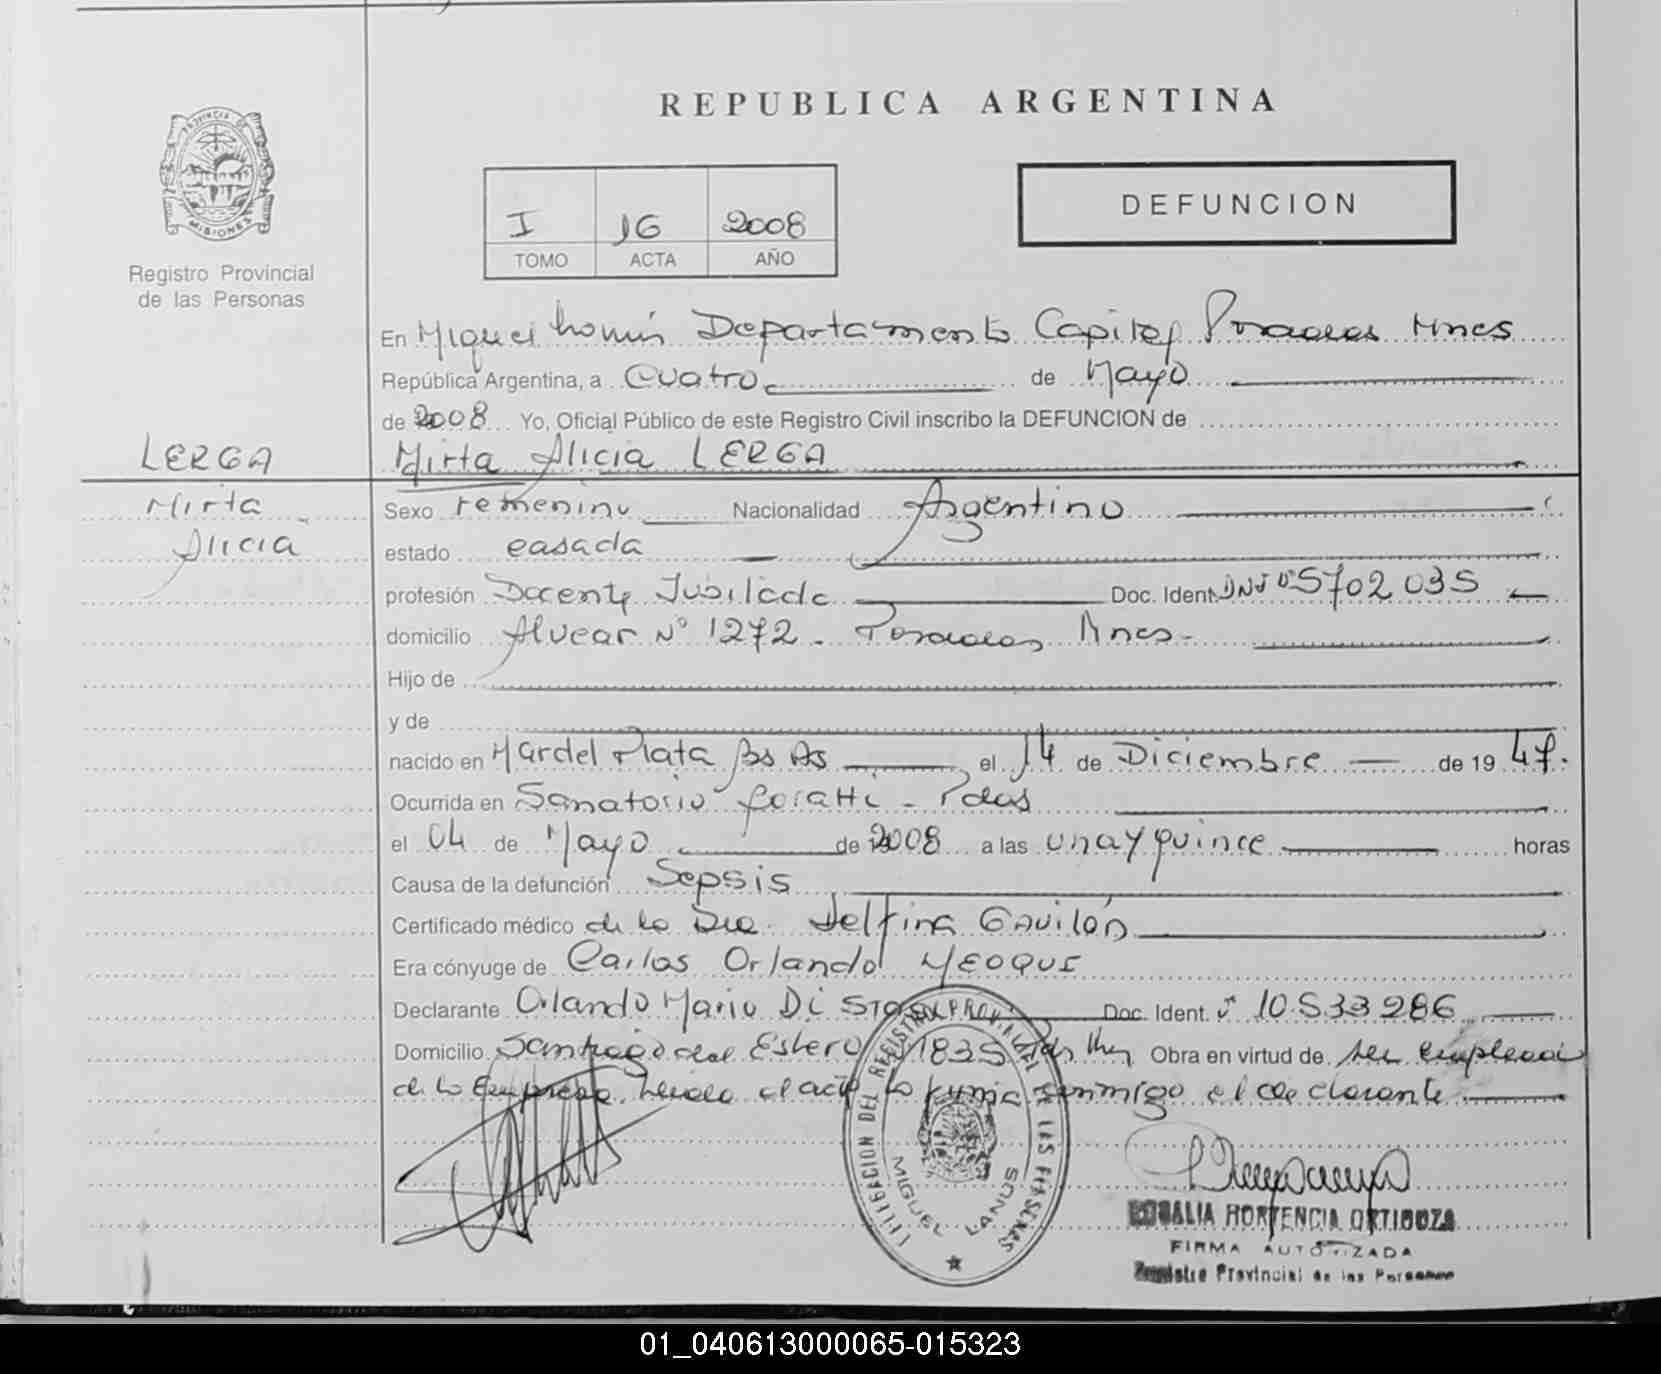 REPUBLICA ARGENTINA
PROVINCIA DE
MISIONES
Registro Provincial
de las Personas
I 16 2008
TOMO ACTA AÑO
DEFUNCION
En Miguel Lanús Departamento Capital Posadas Mnes
República Argentina, a Cuatro de Mayo
de 2008 Yo, Oficial Público de este Registro Civil inscribo la DEFUNCION de
LERGA
Mirta Alicia LERGA
Mirta
Alicia
Sexo Femenino Nacionalidad Argentino
estado casada
profesión Docente Jubilada Doc. Ident. DNI Nº 5702035
domicilio Alvear Nº 1272 - Posadas Mnes-
Hijo de
y de
nacido en Mar del Plata Bs As el 14 de Diciembre de 19 47.
Ocurrida en Sanatorio - Pdas
el 04 de Mayo de 2008 a las una y quince horas
Causa de la defunción Sepsis
Certificado médico de la Dra. Delfina Gavilán
Era cónyuge de Carlos Orlando
Declarante Orlando Mario Di Doc. Ident. 10.533.286
Domicilio Santiago del Estero 1835 Obra en virtud de ser empleado
de la Empresa. Leida el acta la firma conmigo el declarante
DELEGACION DEL REGISTRO PROVINCIAL DE LAS PERSONAS
MIGUEL LANUS
ROSALIA HORTENCIA ORTIGOZA
FIRMA AUTORIZADA
Registro Provincial de las Personas
01_040613000065-015323